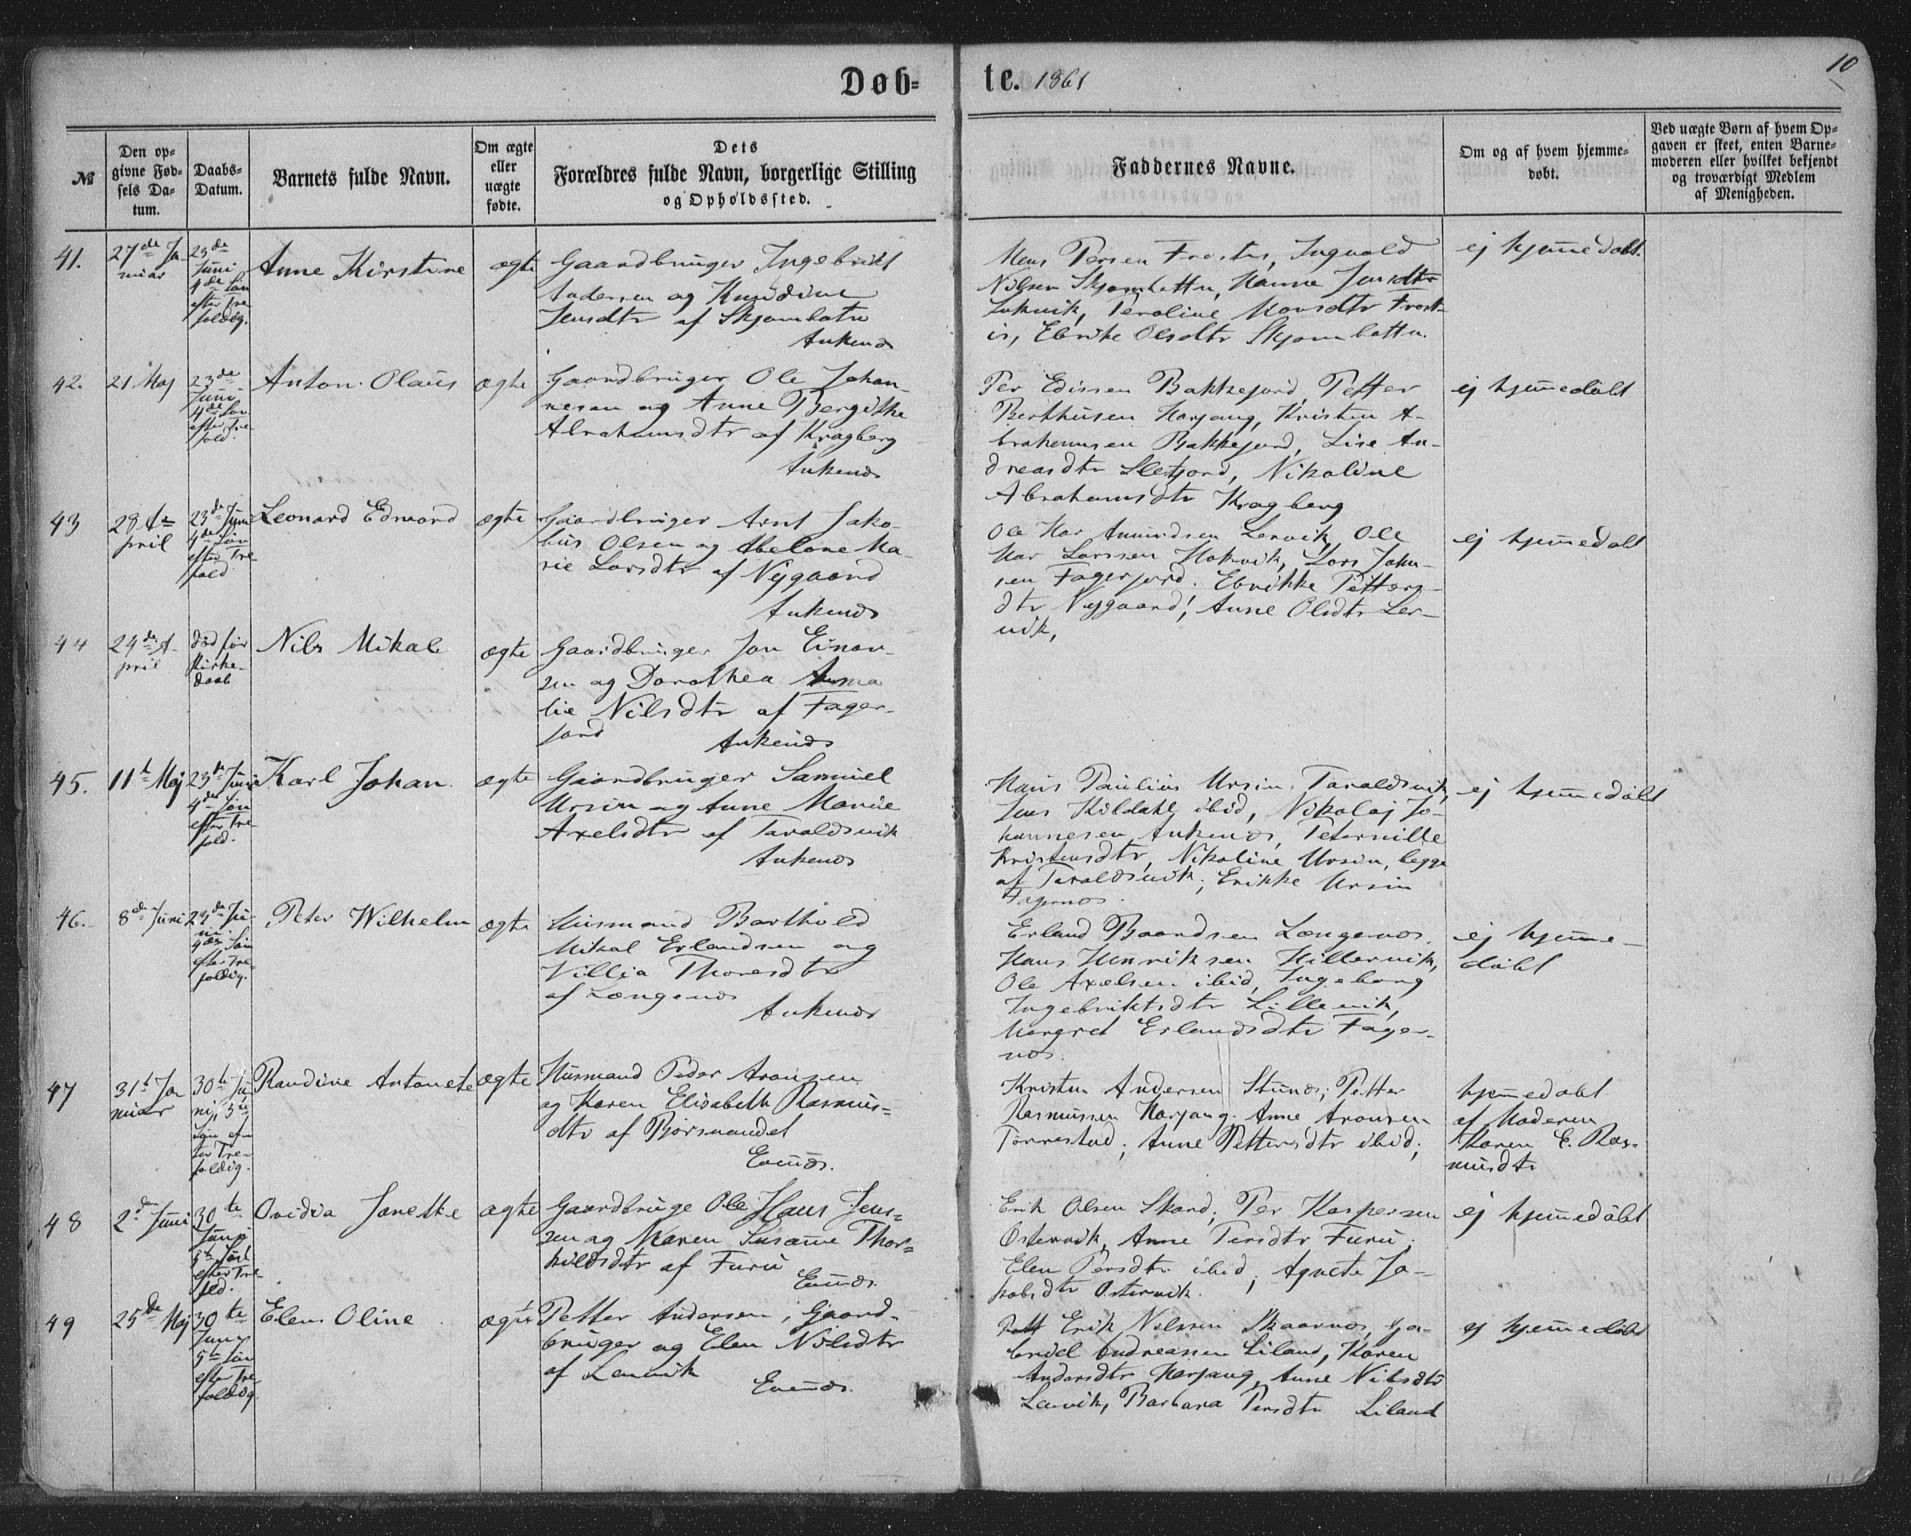 Døb=
te. 1861
10
№
Den op=
givne Fød=
sels Da=
tum.
Daabs=
Datum.
Barnets fulde Navn.
Om ægte
eller
uægte
fødte.
Dets
Forældres fulde Navn, borgerlige Stilling
og Opholdssted.
Faddernes Navne.
Om og af hvem hjemme=
døbt.
Ved uægte Børn af hvem Op=
gaven er skeet, enten Barne=
moderen eller hvilket bekjendt
og troværdigt Medlem
af Menigheden.
41.
27de Ja
nuar
23de
Juni
4de Søn
efter Tre
foldig.
Anne Kirstine
ægte
Gaardbruger Ingebrikt
Andersen og Knudine
Jensdtr af Skjombotn
Ankenes
Persen Frostis, Ingvald
Nilsen Skjombotten, Hanne Jensdtr
Peroline Monsdtr Frost-
is, Ebrike Olsdtr Skjombotten.
ej hjemmedøbt.
42.
21 Maj
23de
Juni
4de Søn
efter Tre
fold.
Anton Olaus
ægte
Gaardbruger Ole Johan-
nesen og Anne Bergitte
Abrahamsdtr af Kragberg
Ankenes
Per Edissen Bakkejord, Petter
Berthusen Harjang, Kristen A-
brahamsen Bakkejord, Lise An-
dreasdtr Sletjord, Nikoline
Abrahamsdtr Kragberg
ej hjemmedøbt
43
28 A=
pril
23de Juni
4de Søn
efter Tre
fold
Leonard Edvard
ægte
Gaardbruger Arnt Jako-
bus Olsen og Abelone Ma
rie Larsdtr af Nygaard
Ankenes
Ole Har Amundsen Lervik, Ole
Har Larssen Hokvik, Lars John-
sen Fagerjord. Ebrikke Petters-
dtr Nygaard, Anne Olsdtr Ler-
vik,
ej hjemmedøbt
44
24de A-
pril
død før
Kirke-
daab
Nils Mikal
ægte
Gaardbruger Jon Einar-
sen og Dorothea Ama
lie Nilsdtr af Fager-
jord
Ankenes
45.
11te Maj
23de Juni
4de Søn
efter Tre
fold.
Karl Johan
ægte
Gaardbruger Samuel
Ursin og Anne Marie
Axelsdtr af Taraldsvik
Ankenes
Hans Paulius Ursin, Taraldsvik,
Jens Kildahl ibid, Nikolaj Jo-
hannesen Ankenes, Peternille
Kristensdtr, Nikoline Ursin, begge
af Taraldsvik, Erikke Ursin
Fagernes.
ej hjemmedøbt
46.
8de Juni
23de Ju-
ni
4de Søn
efter Tre-
foldig.
Peter Wilhelm
ægte
Husmand Barthold
Mikal Erlandsen og
Villia Thoresdtr
af Længenes
Ankenes
Erland Baardsen Længenes.
Hans Henriksen Hillervik,
Ole Axelsen ibid, Ingeborg
Ingebriktsdtr Lillevik,
Margret Erlandsdtr Fager-
nes.
ej hjemme-
døbt
47
31te Ja
nuar
30te Ju
ni, 5te
Søn ef=
ter Tre-
foldig.
Randine Antonete
ægte
Husmand Peder Aronsen
og Karen Elisabeth Rasmus-
dtr af Borsmandet
Evenes.
Kristen Andersen Stunes, Petter
Rasmussen Harjang. Anne Aronsen
Tørrestad; Anne Pettersdtr ibid;
hjemmedøbt
af Moderen
Karen E. Ras=
musdtr
48
2de Juni
30te
Juni
5te Søn
efter Tre
fold.
Ovidia Janette
ægte
Gaardbruge Ole Hans Jens=
sen og Maren Susanne Thor=
kildsdtr af Furu
Evenes.
Erik Olsen Skard, Per Kaspersen
Østervik, Anne Persdtr Furu
Elen Persdtr ibid, Agnete Ja-
kobsdtr Østervik.
ej hjemmedøbt
49
25de Maj
30te
Juni
5te Søn
efter Tre
foldig
Elen Oline
ægte
Petter Andersen, Gaard-
bruger og Elen Nilsdtr
af Lenvik
Evenes.
Erik Nilssen Skaarnes, Ga-
briel Andreassen Liland, Karen
Andersdtr Harjang, Anne Nilsdtr
Lenvik, Barbara Persdtr Liland
ej hjemmedøbt